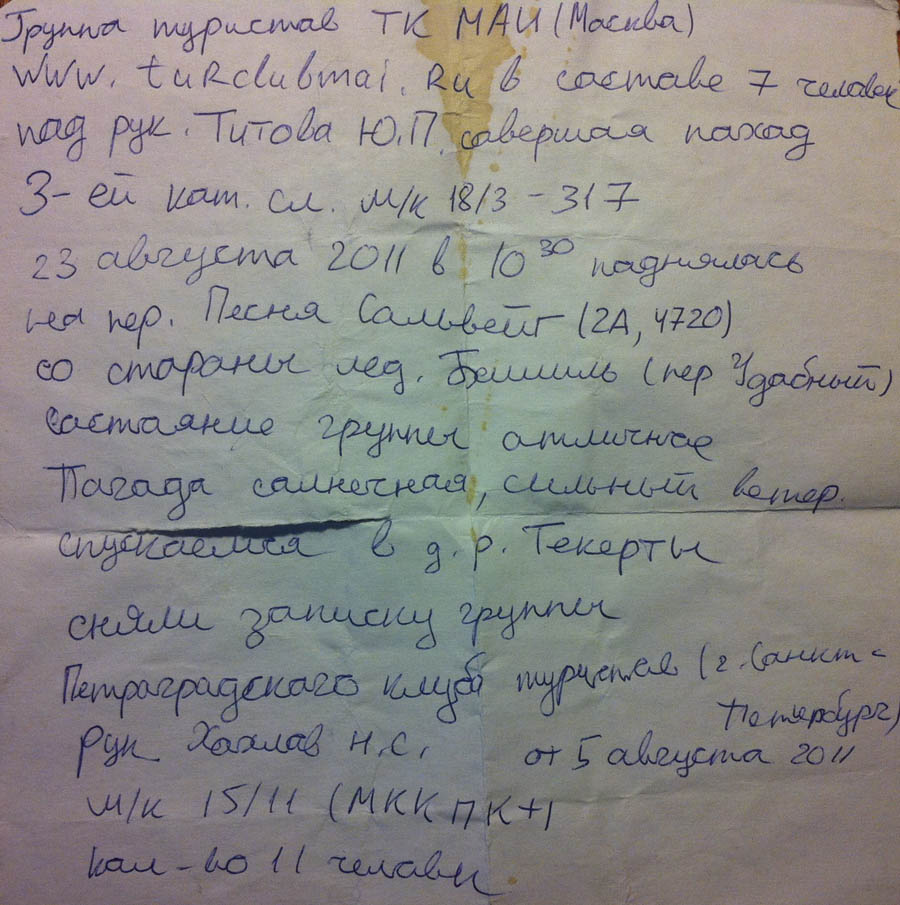 Группа туристов ТК МАИ (Москва)
www.turclubmai.Ru в составе 7 человек
под рук. Титова Ю.П. совершая поход
3-ей кат. сл. м/к 18/3-317
23 августа 2011 в 10 30 поднялась
на пер. Песня Сольвейг (2А, 4720)
со стороны лед. Бешиль (пер Удобный)
состояние группы отличное
Погода солнечная, сильный ветер.
спускаемся в д.р. Текерты
сняли записку группы
Петроградского клуба туристов (г. Санкт-
Петербург)
рук Хохлов Н.С. от 5 августа 2011
м/к 15/11 (МКК ПК+)
кол-во 11 человек